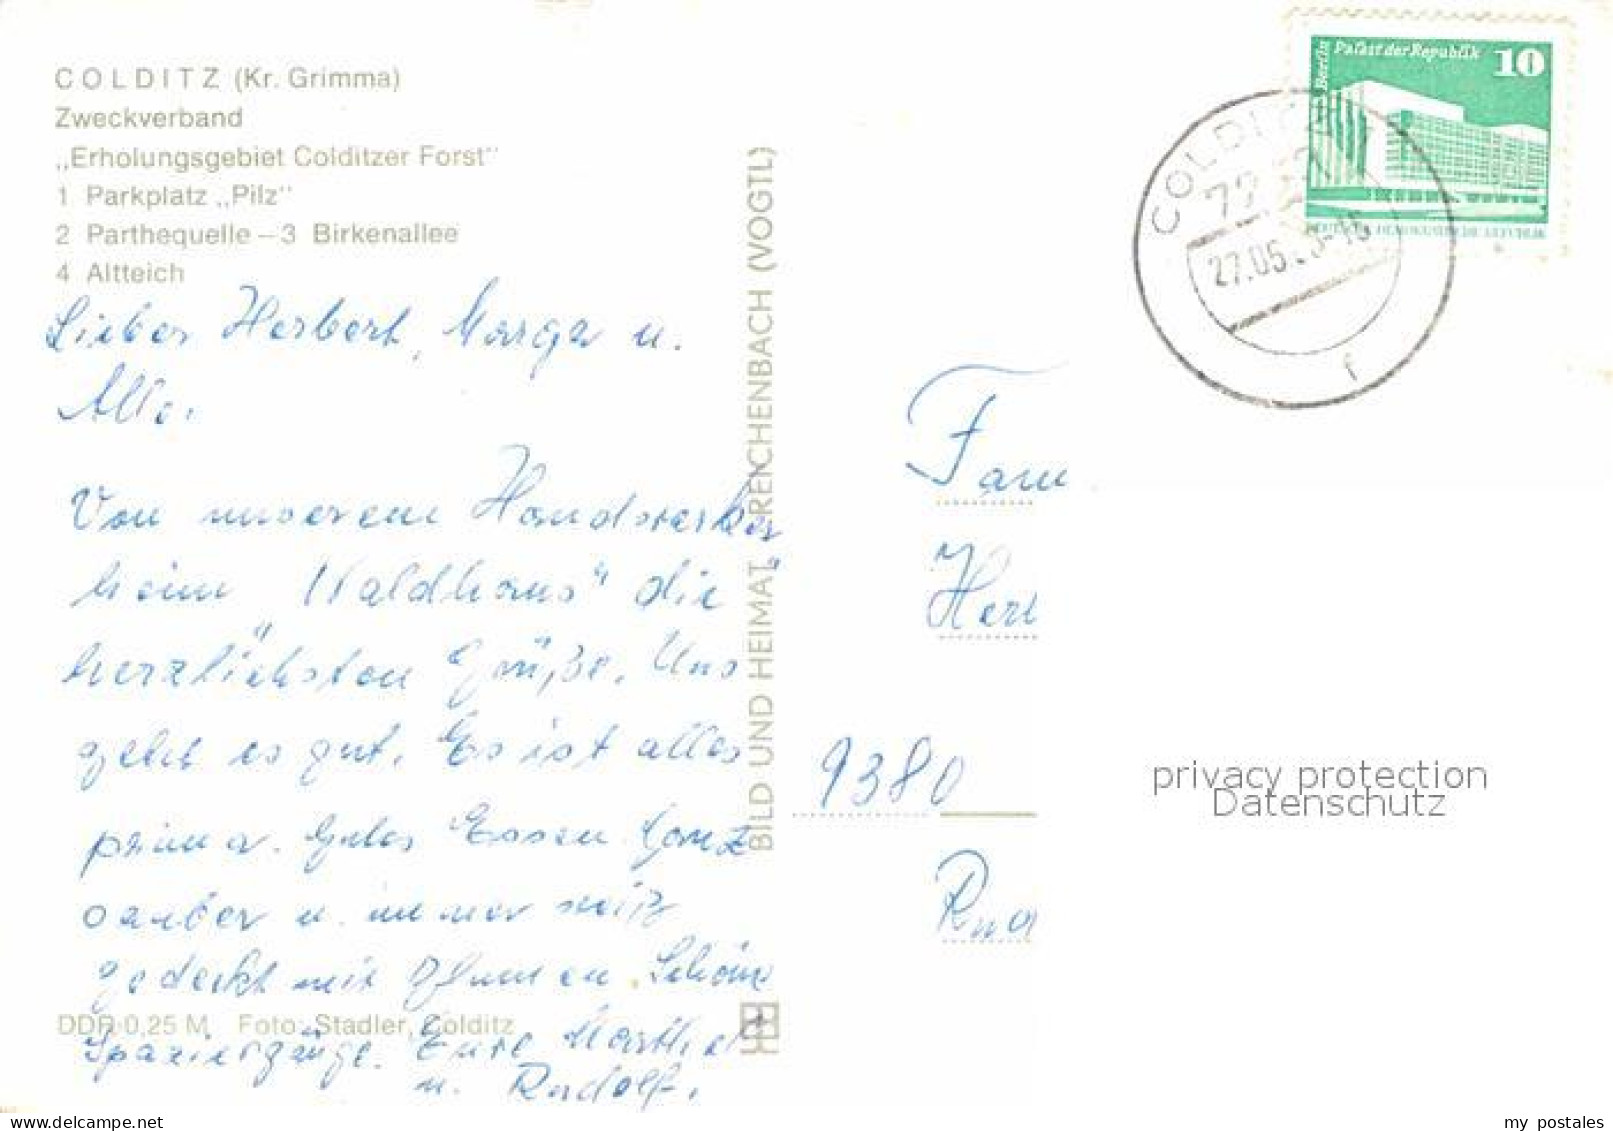 COLDITZ (Kr. Grimma)
Zweckverband
„Erholungsgebiet Colditzer Forst"
1 Parkplatz „Pilz"
2 Parthequelle – 3 Birkenallee
4 Altteich
Lieber Herbert, Marga u.
Alle.
Von unserem Handwerker
heim „Waldhaus" die
herzlichsten Grüße. Uns
geht es gut. Es ist alles
prima. Gutes Essen. Ganz
sauber u. immer weiß
gedeckt mit Blumen. Schöne
Spaziergänge. Eure
u. Rudolf.
DDR 0,25 M Foto: Stadler, Colditz
BILD UND HEIMAT REICHENBACH (VOGTL)
Berlin Palast der Republik 10
DEUTSCHE DEMOKRATISCHE REPUBLIK
COLDITZ
27.05.
f
Fam
Her
9380
privacy protection
Datenschutz
Delcampe.net
TSCHUBBY
my postales